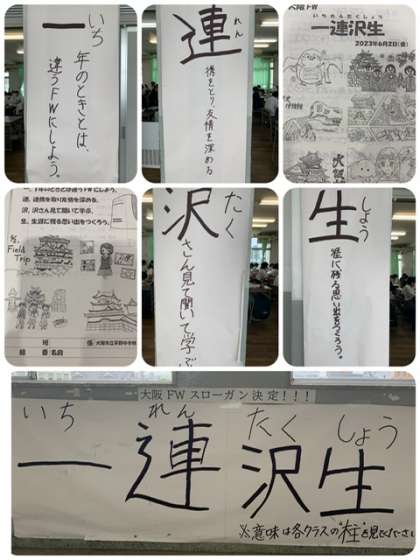 一
いち
年のときとは、
違うFWにしよう。
連
れん
携をとり、友情を深める
大阪 FW
いちれんたくしょう
一連沢生
2023年6月2日(金)
一、一年のときとは違うFWにしよう。
連、連携を取り友情を深める。
沢、沢さん見て聞いて学ぶ。
生、生涯に残る思い出をつくろう。
Field
Trip
沢
たく
さん見て聞いて学ぶ
生
しょう
涯に残る思い出をつくろう。
大阪 FW スローガン 決定!!!
いち れん たく しょう
一連沢生
※意味は各クラスの"柱"を見てください